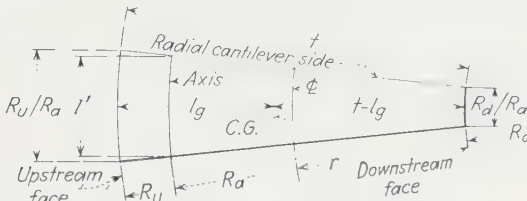 t
Radial cantilever side
Axis
₵
Ru/Ra l' lg t-lg Rd/Ra
C.G.
Rd
Upstream face
Ru Ra r
Downstream face